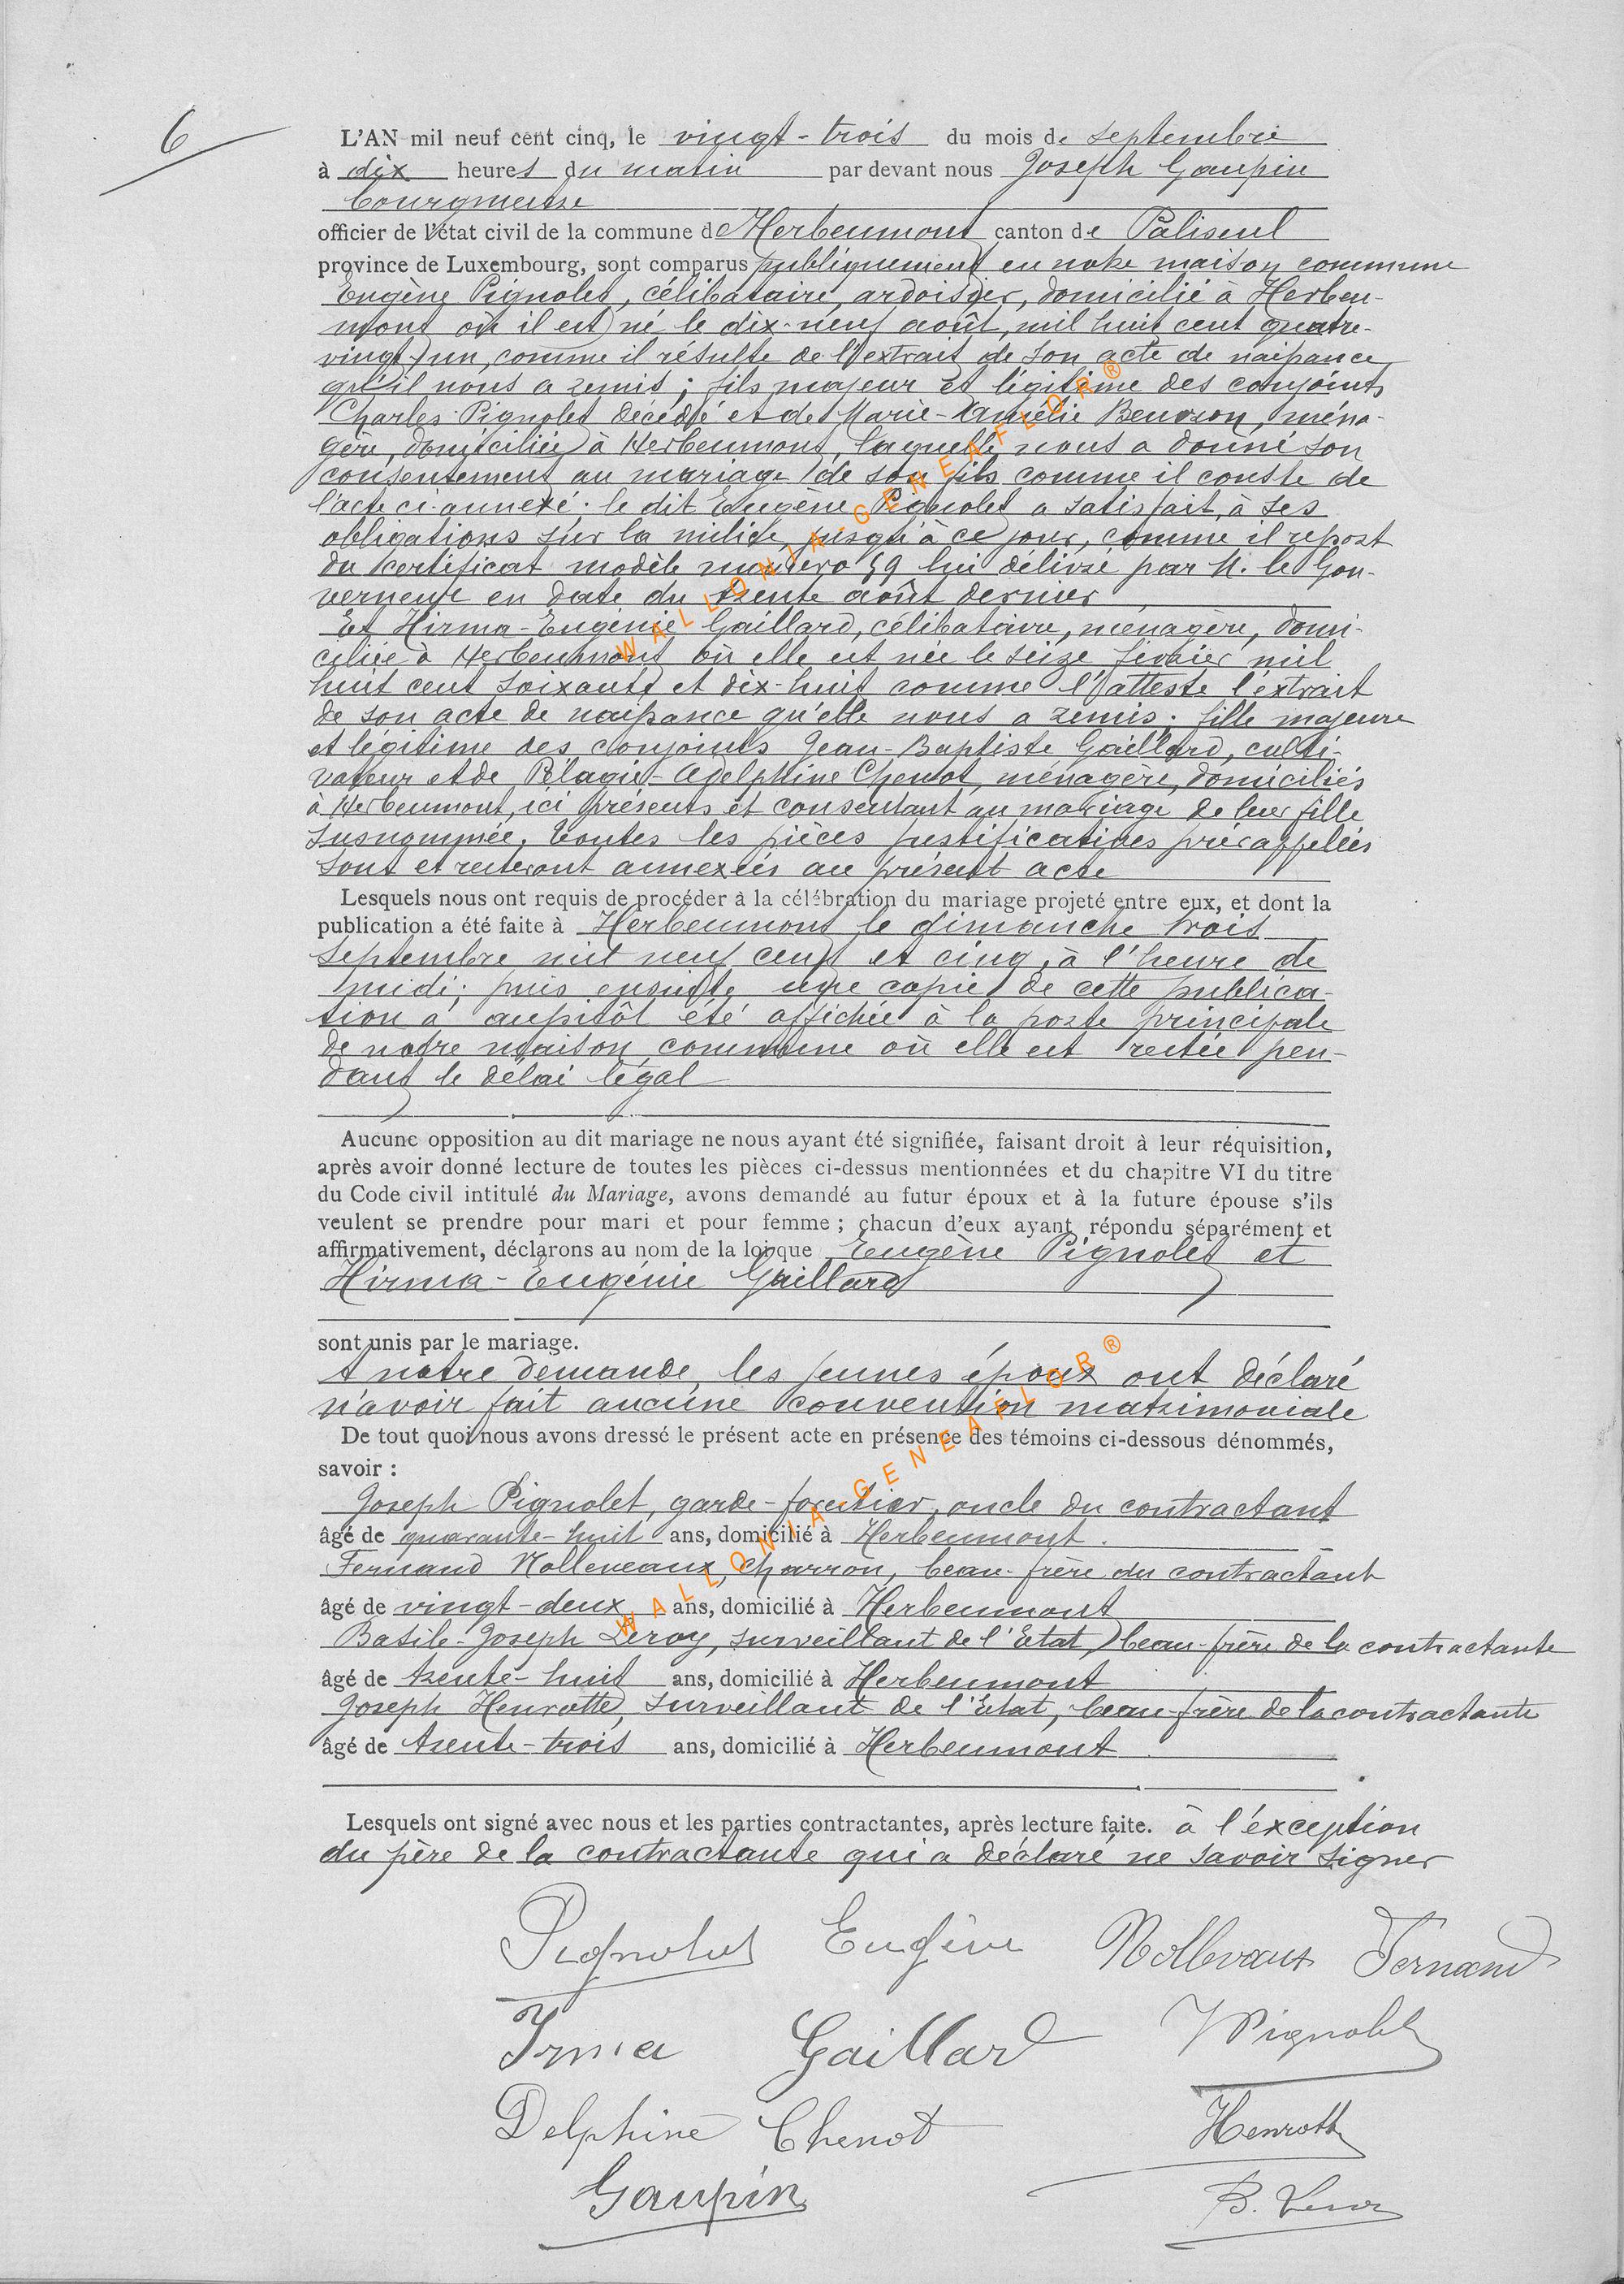 6
L'AN mil neuf cent cinq, le vingt-trois du mois de septembre
à dix heures du matin par devant nous Joseph Gaupin
bourgmestre
officier de l'état civil de la commune de Herbeumont canton de Paliseul
province de Luxembourg, sont comparus publiquement en notre maison commune
Eugène Pignolet, célibataire, ardoisier, domicilié à Herbeu-
mont où il est né le dix-neuf août, mil huit cent quatre-
vingt-un, comme il résulte de l'extrait de son acte de naissance
qu'il nous a remis ; fils majeur et légitime des conjoints
Charles Pignolet décédé et de Marie-Aurélie Beuvron, ména-
gère, domiciliée à Herbeumont, laquelle nous a donné son
consentement au mariage de son fils comme il conste de
l'acte ci-annexé ; le dit Eugène Pignolet a satisfait à ses
obligations sur la milice, jusqu'à ce jour, comme il repost
du certificat modèle numéro 59 lui délivré par M. le Gou-
verneur en date du trente août dernier
Et Hirma-Eugénie Gaillard, célibataire, ménagère, domi-
ciliée à Herbeumont où elle est née le seize février mil
huit cent soixante et dix-huit comme l'atteste l'extrait
de son acte de naissance qu'elle nous a remis ; fille majeure
et légitime des conjoints Jean-Baptiste Gaillard, culti-
vateur et de Pélagie-Adelphine Chenot, ménagère, domiciliés
à Herbeumont, ici présents et consentant au mariage de leur fille
susnommée. Toutes les pièces justificatives prérappelées
sont et resteront annexées au présent acte
Lesquels nous ont requis de procéder à la célébration du mariage projeté entre eux, et dont la
publication a été faite à Herbeumont le dimanche trois
septembre mil neuf cent et cinq, à l'heure de
midi ; puis ensuite une copie de cette publica-
tion a aussitôt été affichée à la porte principale
de notre maison commune où elle est restée pen-
dant le délai légal
Aucune opposition au dit mariage ne nous ayant été signifiée, faisant droit à leur réquisition,
après avoir donné lecture de toutes les pièces ci-dessus mentionnées et du chapitre VI du titre
du Code civil intitulé du Mariage, avons demandé au futur époux et à la future épouse s'ils
veulent se prendre pour mari et pour femme ; chacun d'eux ayant répondu séparément et
affirmativement, déclarons au nom de la loi que Eugène Pignolet et
Hirma-Eugénie Gaillard
sont unis par le mariage.
A notre demande, les jeunes époux ont déclaré
n'avoir fait aucune convention matrimoniale
De tout quoi nous avons dressé le présent acte en présence des témoins ci-dessous dénommés,
savoir :
Joseph Pignolet, garde-forestier, oncle du contractant
âgé de quarante-huit ans, domicilié à Herbeumont.
Fernand Nolleveaux, charron, beau-frère du contractant
âgé de vingt-deux ans, domicilié à Herbeumont
Basile-Joseph Leroy, surveillant de l'Etat, beau-frère de la contractante
âgé de trente-huit ans, domicilié à Herbeumont
Joseph Henrotte, surveillant de l'Etat, beau-frère de la contractante
âgé de trente-trois ans, domicilié à Herbeumont
Lesquels ont signé avec nous et les parties contractantes, après lecture faite. à l'éxception
du père de la contractante qui a déclaré ne savoir signer
Pignolet Eugène Nollevaux Fernand
Irma Gaillard J Pignolet
Delphine Chenot Henrotte
Gaupin B. Leroy
WALLONIA-GENEAFLOR®
WALLONIA-GENEAFLOR®